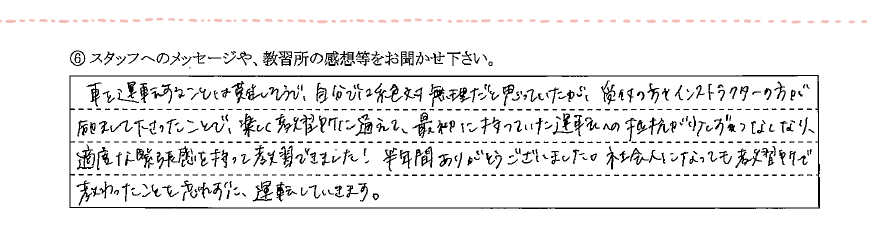 ⑥ スタッフへのメッセージや、教習所の感想等をお聞かせ下さい。
車を運転することは難しそうで、自分では絶対無理だと思っていたが、受付の方やインストラクターの方が
励まして下さったことで、楽しく教習所に通えて、最初に持っていた運転への抵抗が少しずつなくなり、
適度な緊張感を持って教習できました！半年間ありがとうございました。社会人になっても教習所で
教わったことを忘れずに、運転していきます。